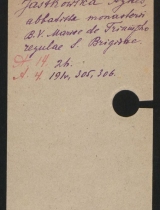 Jastkowska Agnes
abbatissa monasterii
B.V. Mariae de Triumpho
regulae S. Brigidae
A. 14. 2h.
A. 4. 191v, 305, 306.